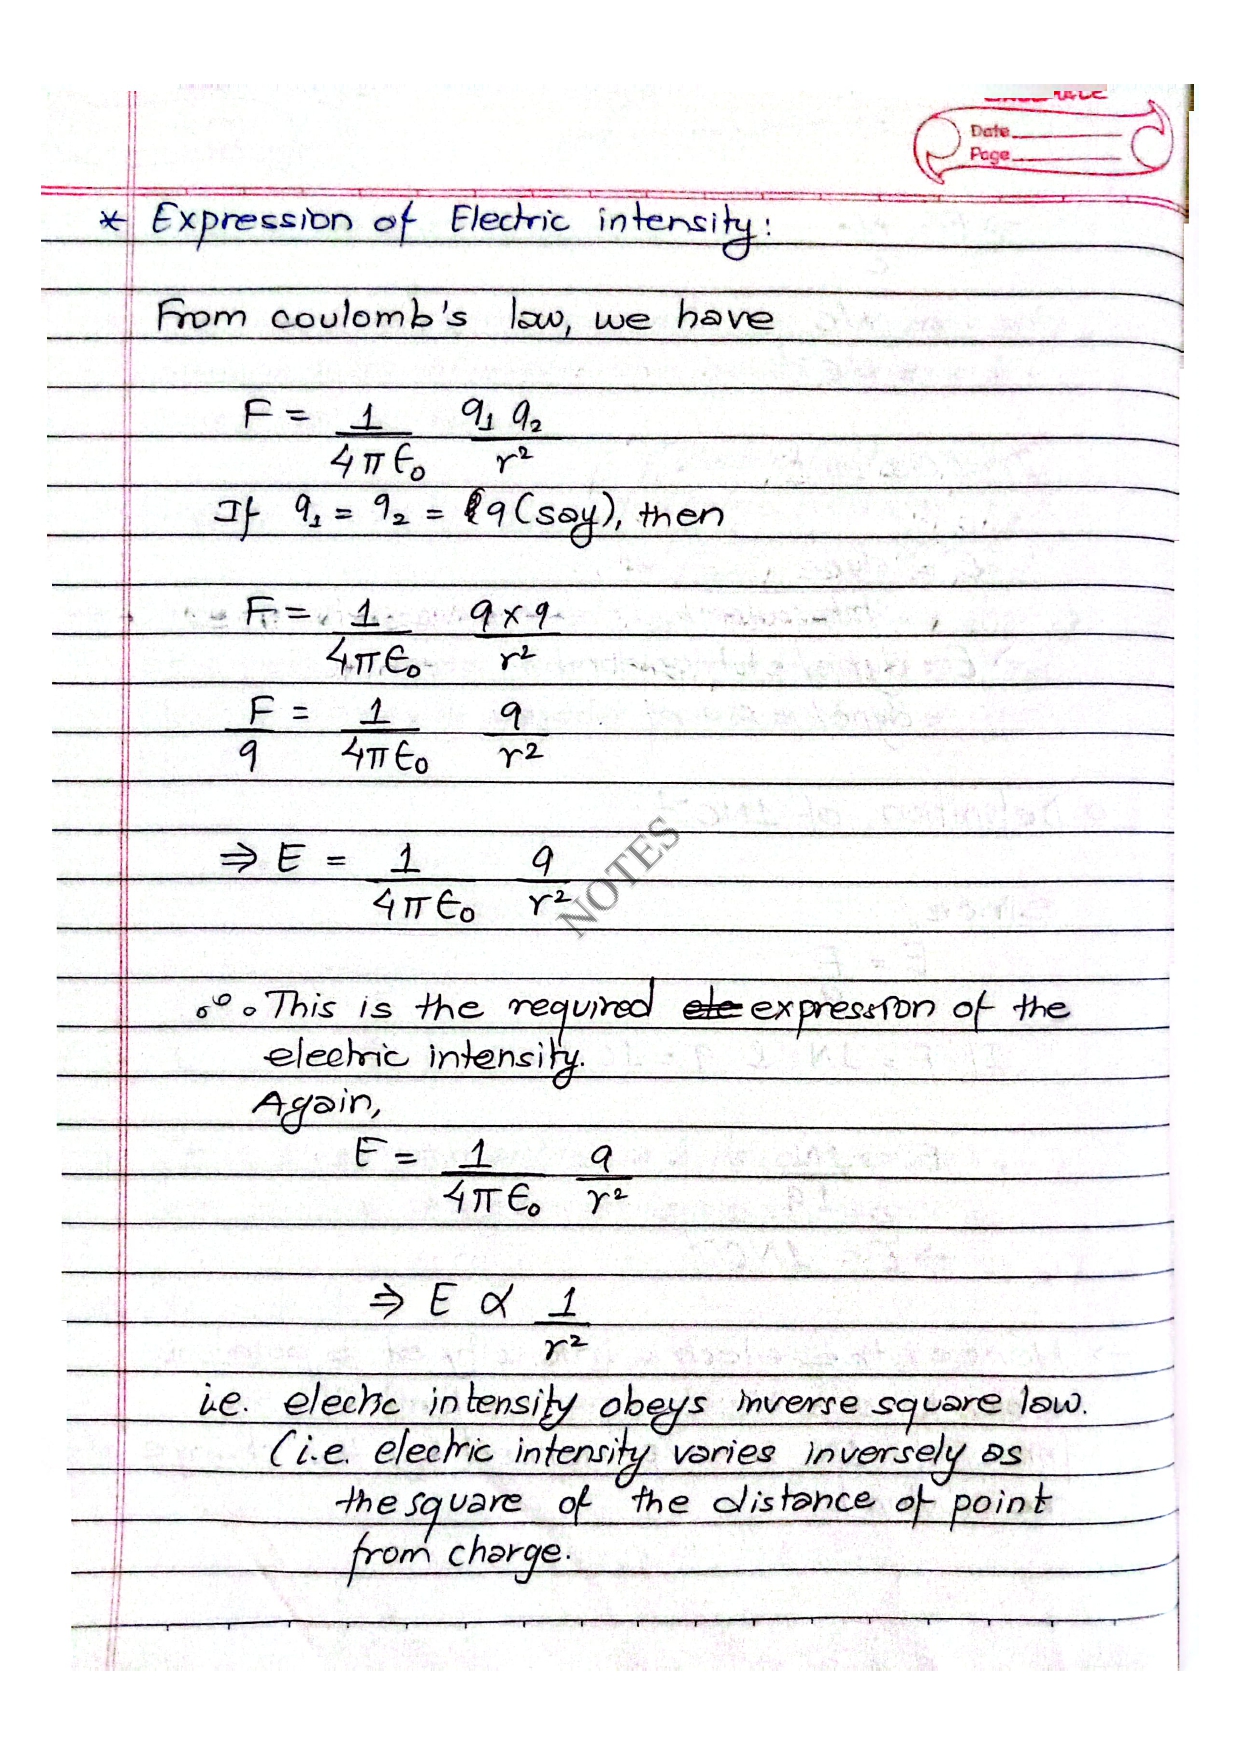 Date
Page
* Expression of Electric intensity:
From coulomb's law, we have
F = 1/4πϵ₀ q₁ q₂/r²
If q₁ = q₂ = q (say), then
F = 1/4πϵ₀ q×q/r²
F/q = 1/4πϵ₀ q/r²
⇒ E = 1/4πϵ₀ q/r²
NOTES
∴ This is the required expression of the
electric intensity.
Again,
E = 1/4πϵ₀ q/r²
⇒ E ∝ 1/r²
i.e. electric intensity obeys inverse square law.
(i.e. electric intensity varies inversely as
the square of the distance of point
from charge.